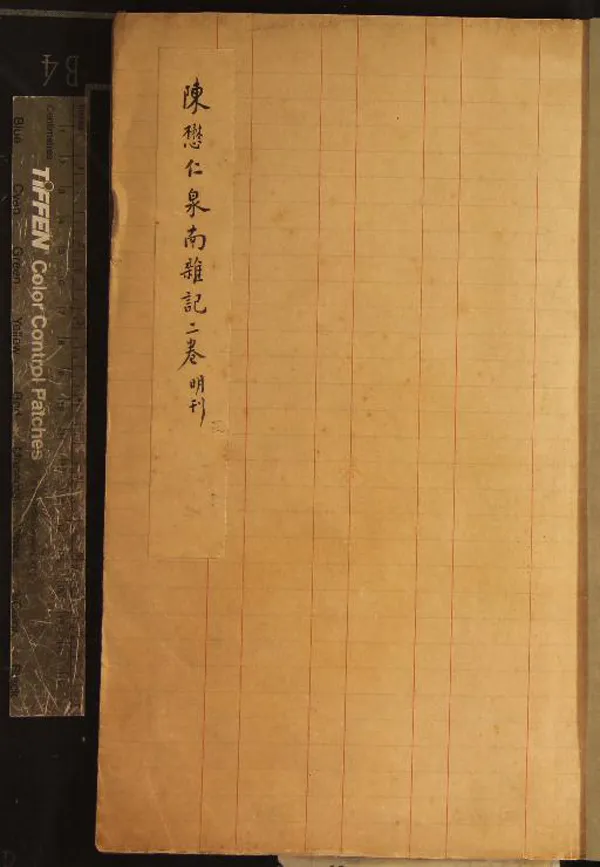 陳懋仁泉南雜記二卷 明刊
B4
TIFFEN Color Control Patches
Centimetres
Blue
Cyan
Green
Yellow
Red